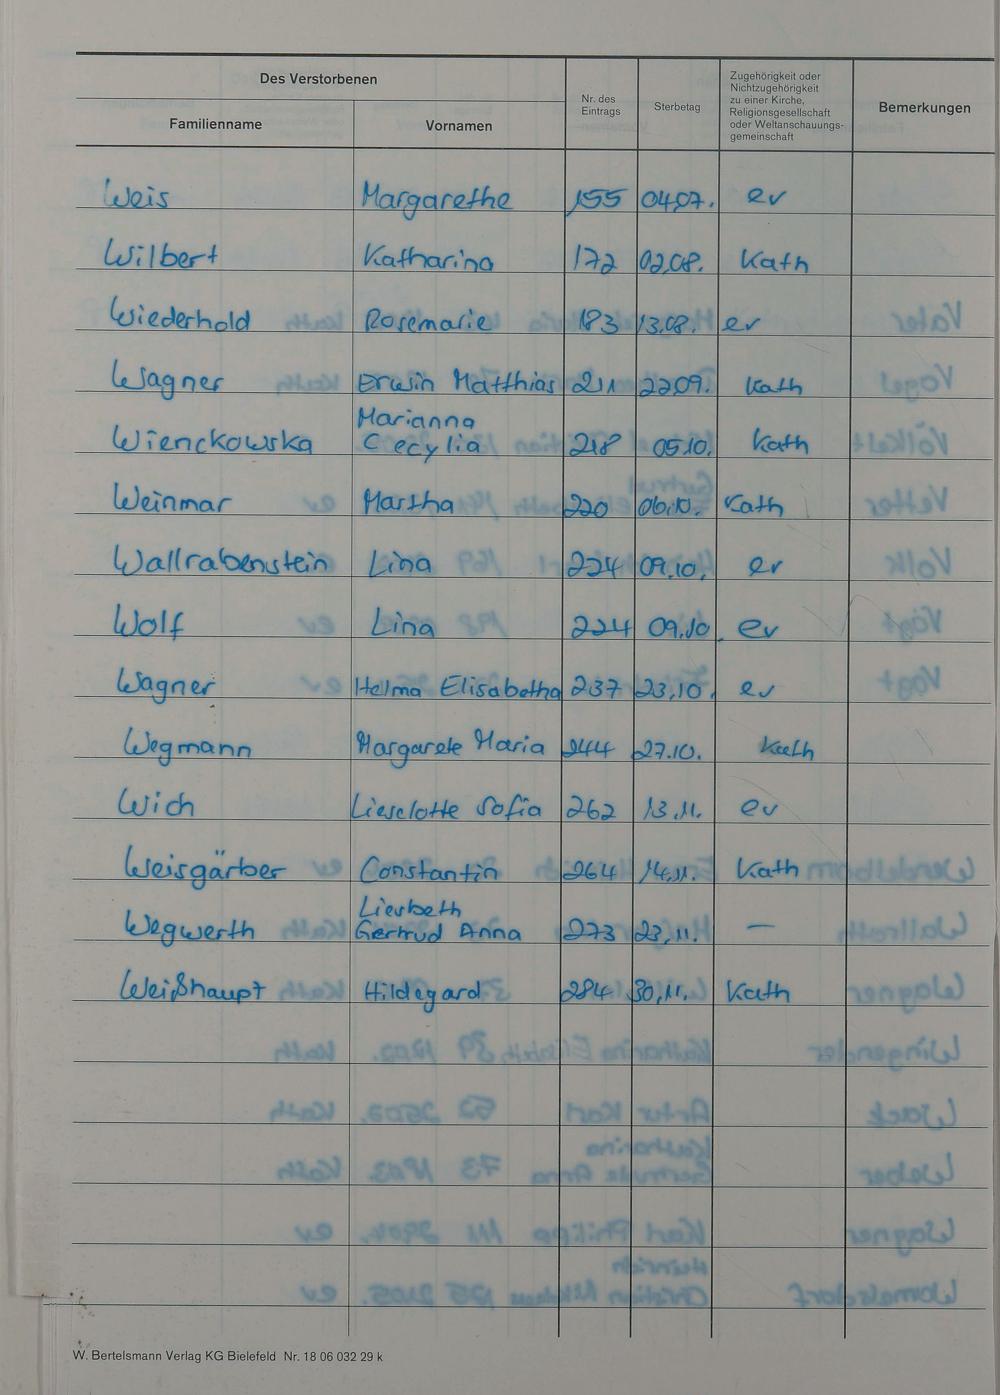 Des Verstorbenen
Familienname Vornamen Nr. des Eintrags Sterbetag Zugehörigkeit oder Nichtzugehörigkeit zu einer Kirche, Religionsgesellschaft oder Weltanschauungs-gemeinschaft Bemerkungen
Weis Margarethe 155 04.07. ev
Wilbert Katharina 172 02.08. Kath
Wiederhold Rosemarie 183 13.08. ev
Wagner Erwin Matthias 211 22.09. Kath
Marianna
Wienckowska Cecylia 218 05.10. Kath
Weinmar Martha 220 06.10. Kath
Wallrabenstein Lina 224 09.10. ev
Wolf Lina 224 09.10. ev
Wagner Helma Elisabetha 237 23.10. ev
Wegmann Margarete Maria 244 27.10. Kath
Wich Lieselotte Sofia 262 13.11. ev
Weisgärber Constantin 264 14.11. Kath
Liesbeth
Wegwerth Gertrud Anna 273 23.11. —
Weißhaupt Hildegard 284 30.11. Kath
W. Bertelsmann Verlag KG Bielefeld Nr. 18 06 032 29 k